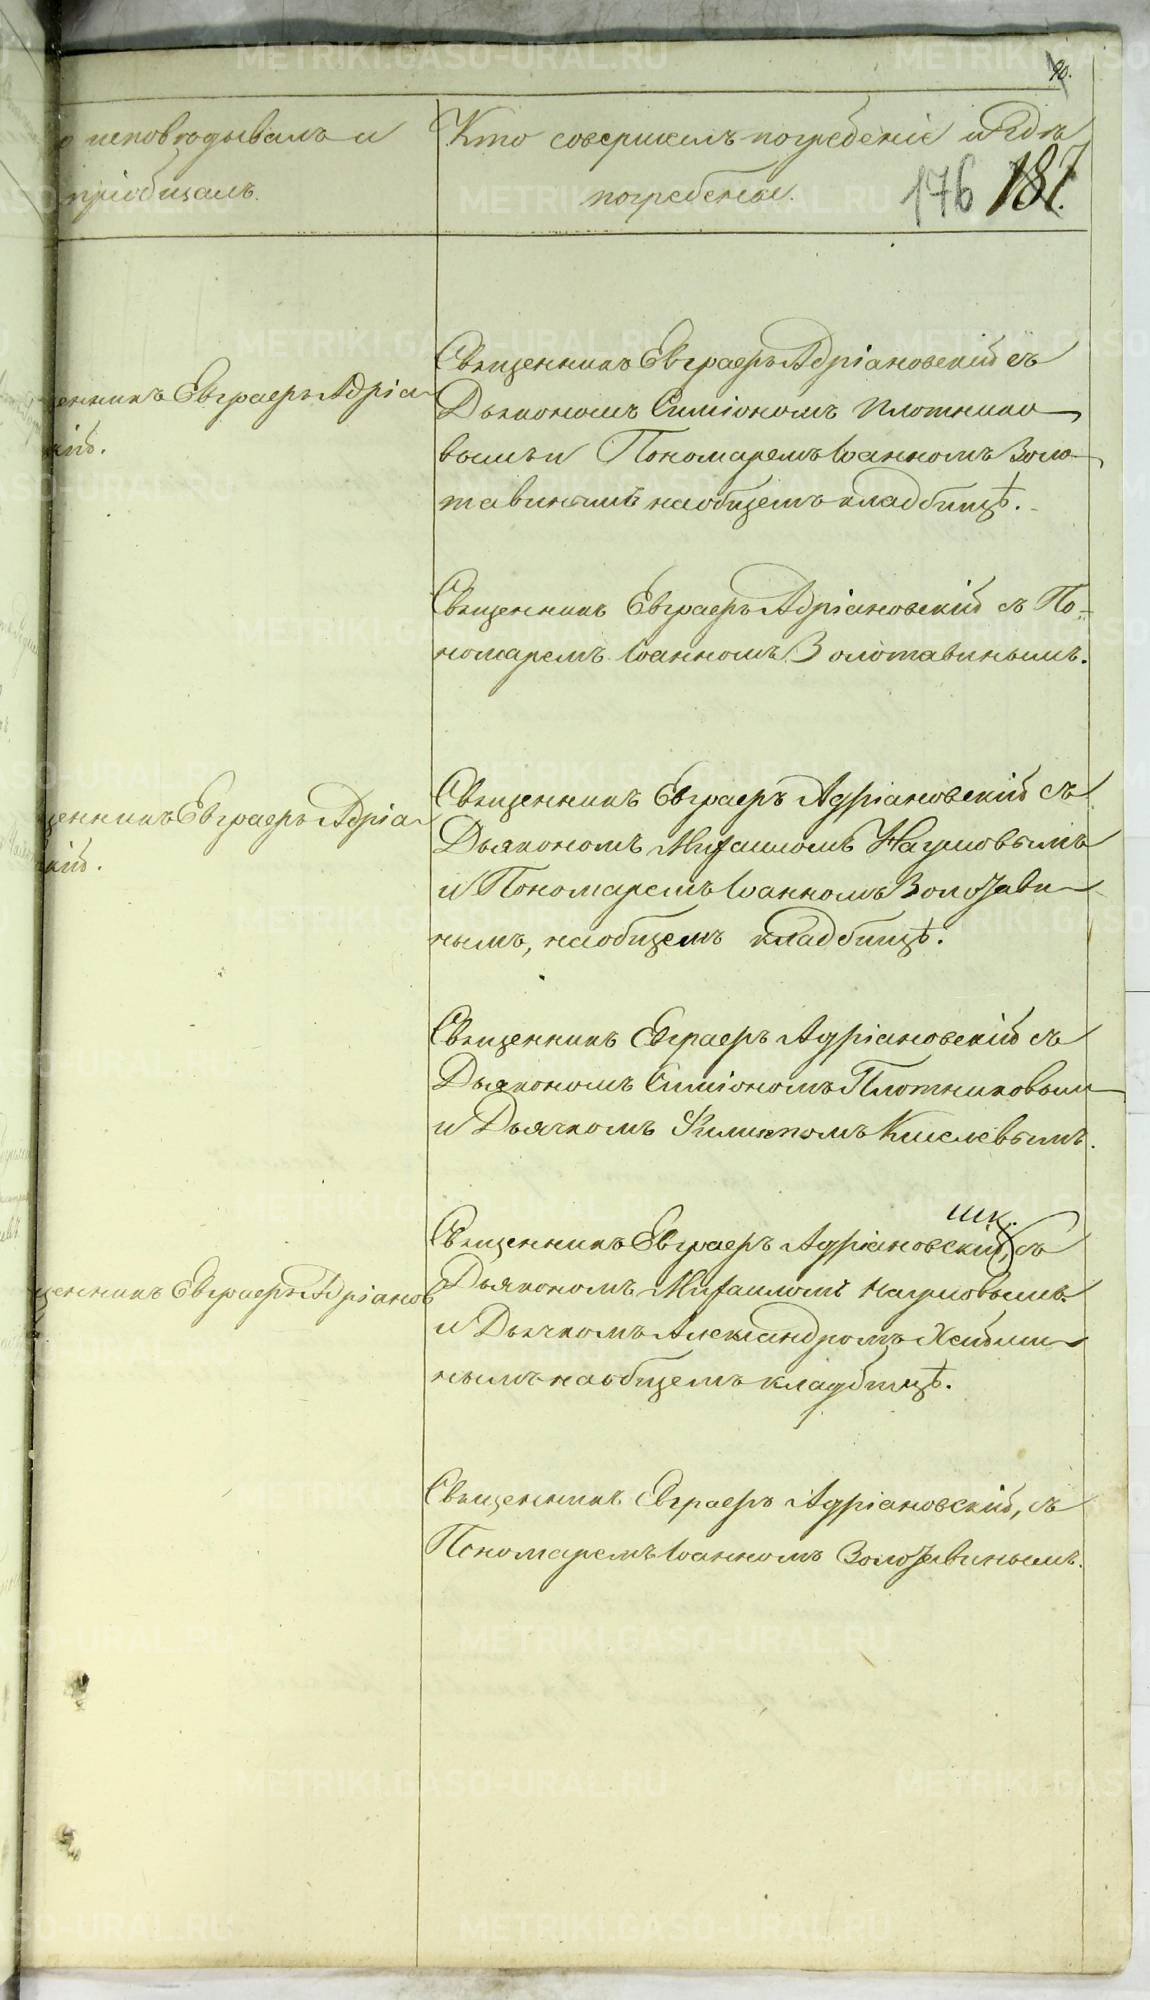 90.
исповѣдывалъ и
пріобщалъ.
Кто совершилъ погребеніе и гдѣ
погребены.
176 187.
енникъ Евграфъ Адріа-
кій.
Священникъ Евграфъ Адріановскій съ
Дьякономъ Симіономъ Плотнико
вымъ и Пономаремъ Іоанномъ Золо-
тавинымъ на общемъ кладбищѣ.
Священникъ Евграфъ Адріановскій съ По-
номаремъ Іоанномъ Золотавинымъ.
щенникъ Евграфъ Адріа-
кій.
Священникъ Евграфъ Адріановскій съ
Дьякономъ Михаиломъ Наумовымъ
и Пономаремъ Іоанномъ Золотави-
нымъ, на общемъ кладбищѣ.
Священникъ Евграфъ Адріановскій съ
Дьякономъ Симіономъ Плотниковым
и Дьячкомъ Филиппомъ Киселевымъ.
щенникъ Евграфъ Адріанов
шк.
Священникъ Евграфъ Адріановскій, съ
Дьякономъ Михаиломъ Наумовымъ
и Дьячкомъ Александромъ
нымъ на общемъ кладбищѣ.
Священникъ Евграфъ Адріановскій, съ
Пономаремъ Іоанномъ Золотавинымъ.
METRIKI.GASO-URAL.RU